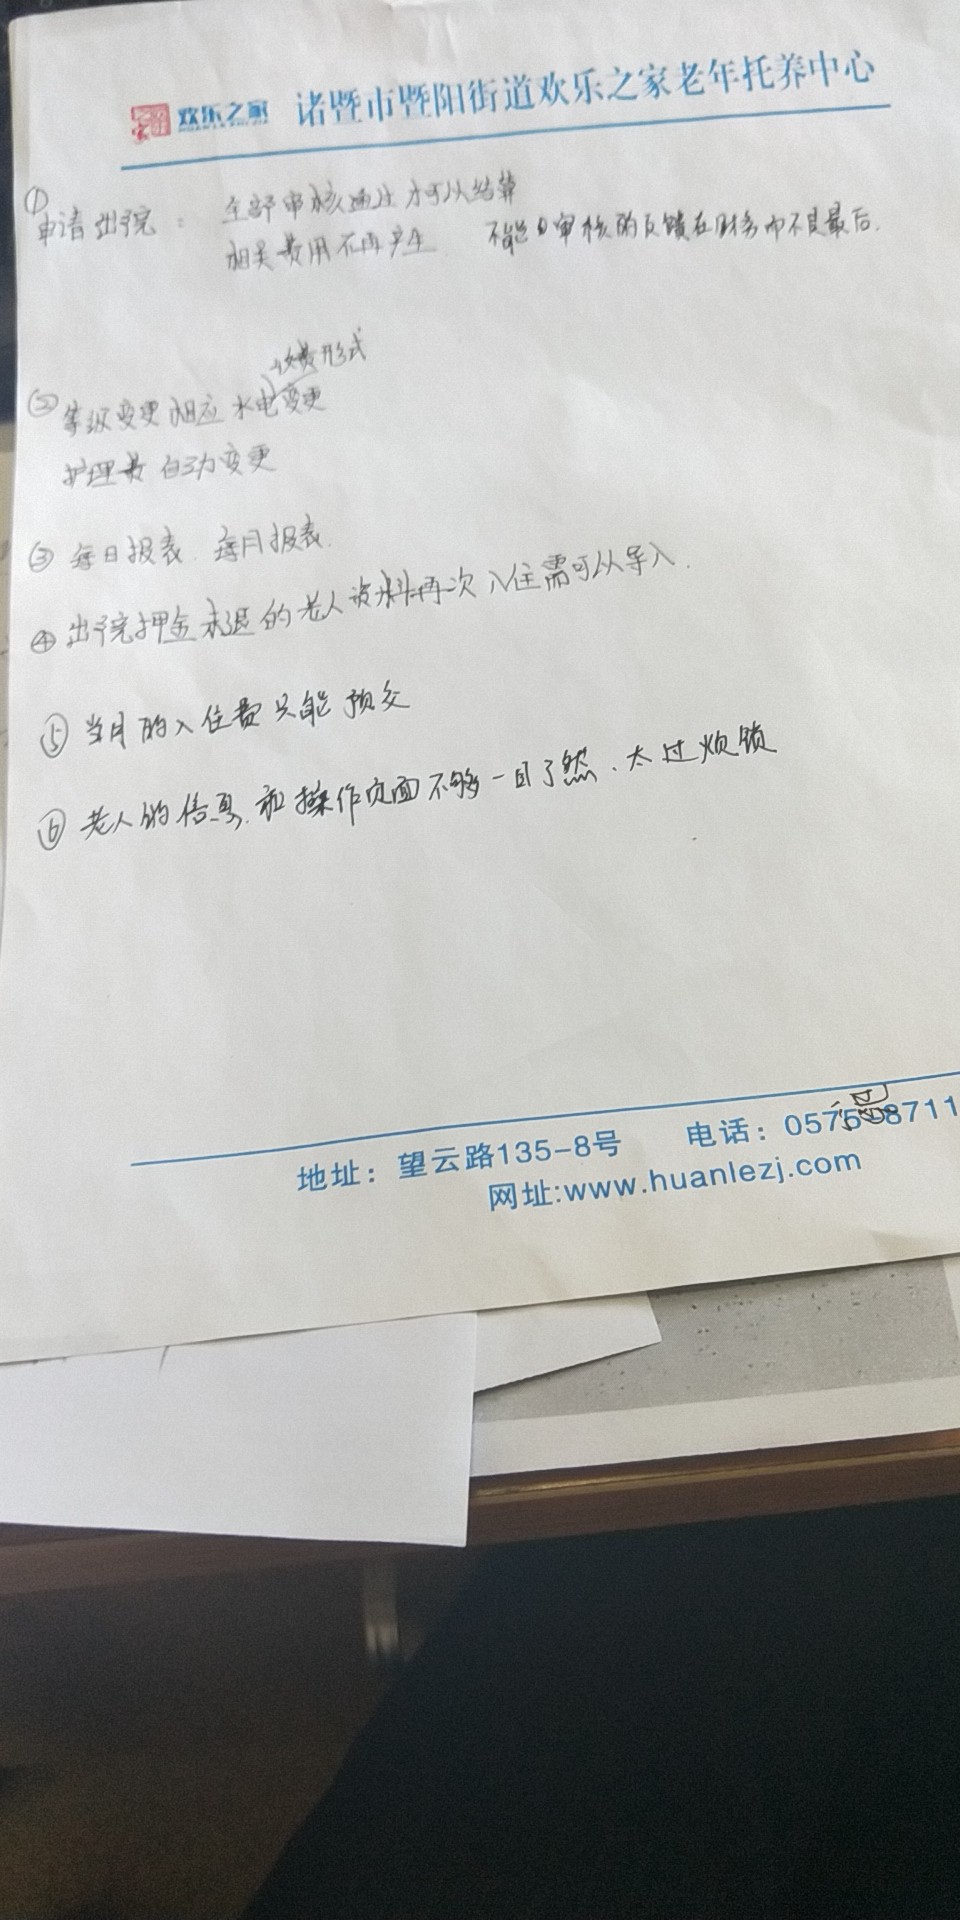 欢乐之家 诸暨市暨阳街道欢乐之家老年托养中心
①
申请出院： 全部审核通过才可以结算
相关费用不再产生 不能审核的反馈在财务而不是最后.
收费形式
② 等级变更 相应水电变更
护理费 自动变更
③ 每日报表. 每月报表.
④ 出院押金未退的老人资料再次入住需可以导入.
⑤ 当月的入住费只能预交
⑥ 老人的信息. 和操作页面不够一目了然. 太过烦锁
地址：望云路135-8号 电话：0575-8711
网址:www.huanlezj.com